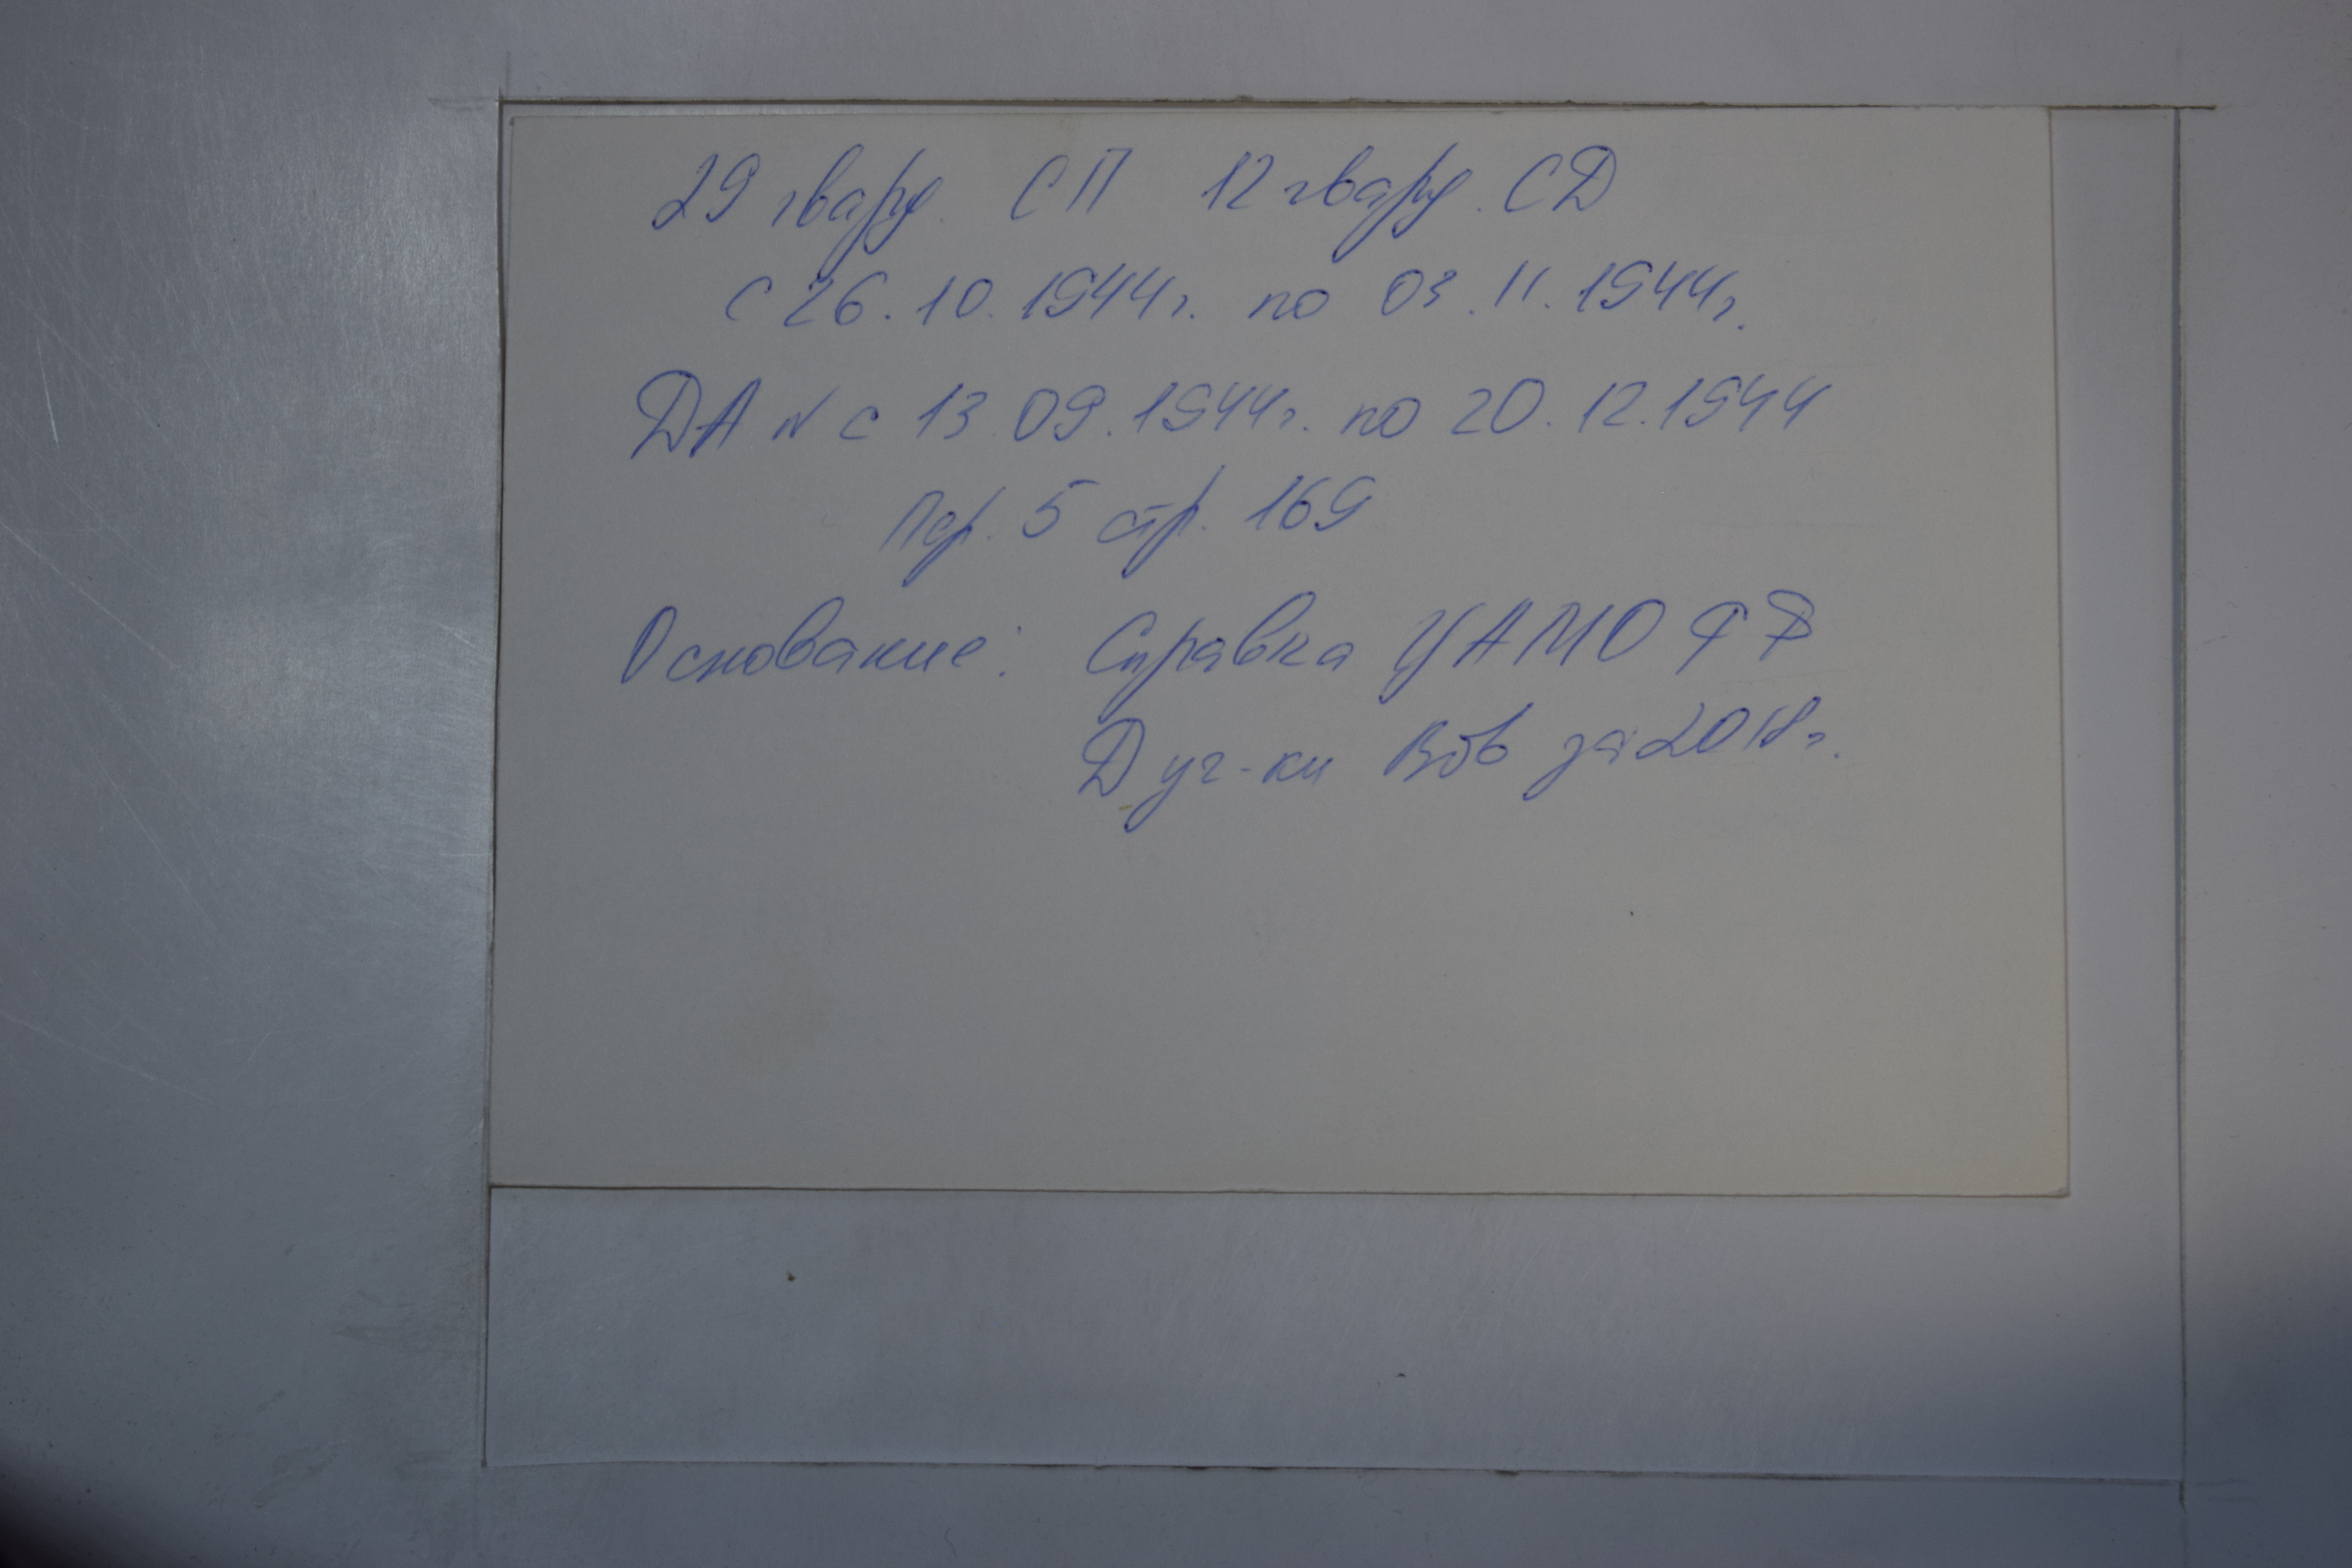 29 гвард. СП 12 гвард. СД
с 26.10.1944г. по 03.11.1944г.
ДА № с 13.09.1944г. по 20.12.1944
Пер. 5 стр. 169
Основание: Справка ЦАМО РФ
Д уч-ки ВОВ за 2018г.